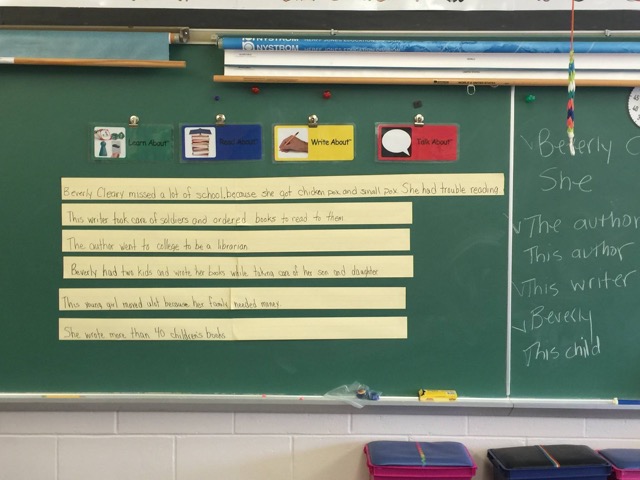 NYSTROM
NYSTROM
Learn About
Read About
Write About
Talk About
Beverly Cleary missed a lot of school, because she got chicken pox and small pox. She had trouble reading
This writer took care of soldiers and ordered books to read to them
The author went to college to be a librarian
Beverly had two kids and wrote her books while taking care of her son and daughter
This young girl moved alot because her family needed money.
She wrote more than 40 children's books
Beverly C
She
The author
This author
This writer
Beverly
This child